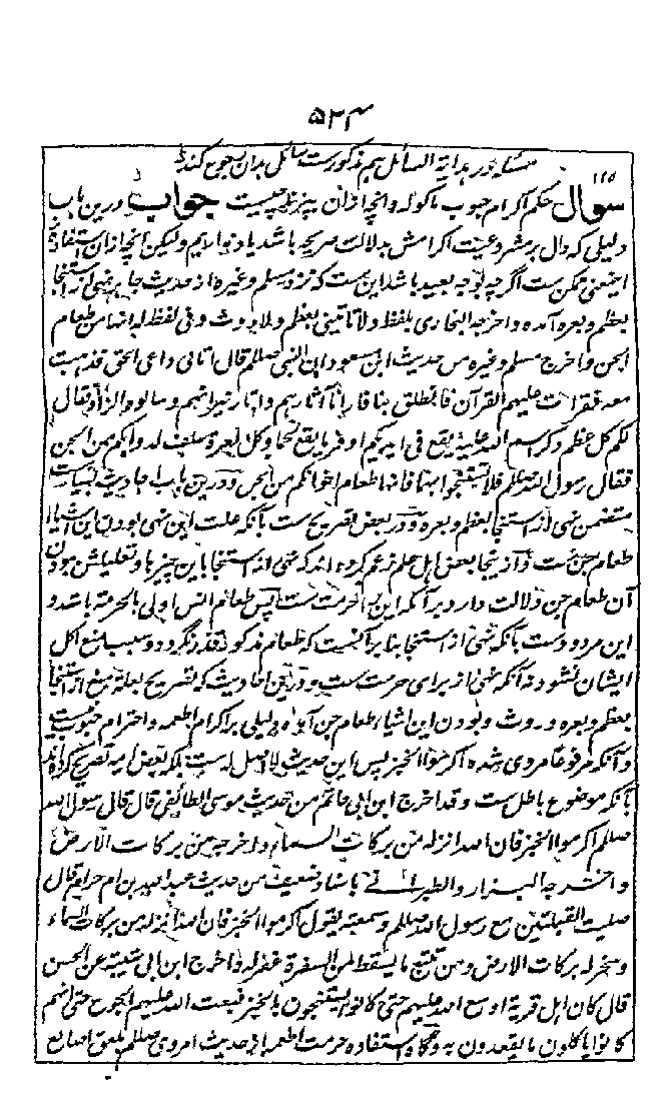 ۵۲۴
مسئله در هدایة السائل هم مذکورست سائل بدان رجوع کند
۱۲۵
سوال حکم اکرام حبوب ماکوله و انچه ازان پزند چیست جواب درین باب
دلیلی که دال بر مشروعیت اکرامش بدلالت صریحه باشد یاد نداریم ولیکن انچه ازان استفادهٔ
اینمعنی ممکن ست اگرچه بوجه بعید باشد این ست که نزد مسلم و غیره از حدیث جابر نهی از استنجا
بعظم و بعره آمده و اخرجه البخاری بلفظ ولا تاتینی بعظم ولا بروث وفی لفظ له انهما من طعام
الجن و اخرج مسلم و غیره من حدیث ابن مسعود ان النبی صلعم قال اتانی داعی الجن فذهبت
معه فقرات علیهم القرآن فانطلق بنا فارانا آثارهم و آثار نیرانهم وسالوه الزاد فقال
لکم کل عظم ذکر اسم الله علیه یقع فی ایدیکم اوفر ما یقع لحما وکل بعرة علف لدوابکم من الجن
فقال رسول الله صلعم فلا تستنجوا بهما فانهما طعام اخوانکم من الجن و درین باب احادیث بسیارست
متضمن نهی از استنجا بعظم و بعره و در بعض تصریح ست بآنکه علت این نهی بودن این اشیا
طعام جن ست و ازینجا بعض اهل علم زعم کرده اند که نهی از استنجا باین چیزها و تعلیلش ببودن
آن طعام جن دلالت دارد بر آنکه این از حرمت ست پس طعام انس اولی بالحرمة باشد و
این مردودست بآنکه نهی از استنجا بنا بر آنست که طعام مذکور قذر نگردد و سبب منع اکل
ایشان نشود نه آنکه نهی از برای حرمت ست و درین احادیث که تصریح بعلة منع از استنجا
بعظم و بعره و روث و بودن این اشیاء طعام جن آمده دلیلی بر اکرام اطعمه و احترام حبوب نیست
و آنکه مرفوعا مروی شده اکرموا الخبز پس این حدیث لا اصل له ست بلکه بعض ایمه تصریح کرده اند
بآنکه موضوع باطل ست و قد اخرج ابن ابی حاتم من حدیث موسی الطائفی قال قال رسول الله
صلعم اکرموا الخبز فان الله انزله من برکات السماء و اخرجه من برکات الارض
و اخرجه البزار والطبرانی باسناد ضعیف من حدیث عبد الله بن ام حرام قال
صلیت القبلتین مع رسول الله صلعم و سمعته یقول اکرموا الخبز فان الله انزله من برکات السماء
وسخر له برکات الارض ومن تتبع ما یسقط من السفرة غفر له و اخرج ابن ابی شیبة عن الحسن
قال کان اهل قریة اوسع الله علیهم حتی کانوا یستنجون بالخبز فبعث الله علیهم الجوع حتی انهم
کانوا یاکلون ما یقعدون به و گاه استفاده حرمت اطعمه از حدیث امر وی صلعم بلعق اصابع